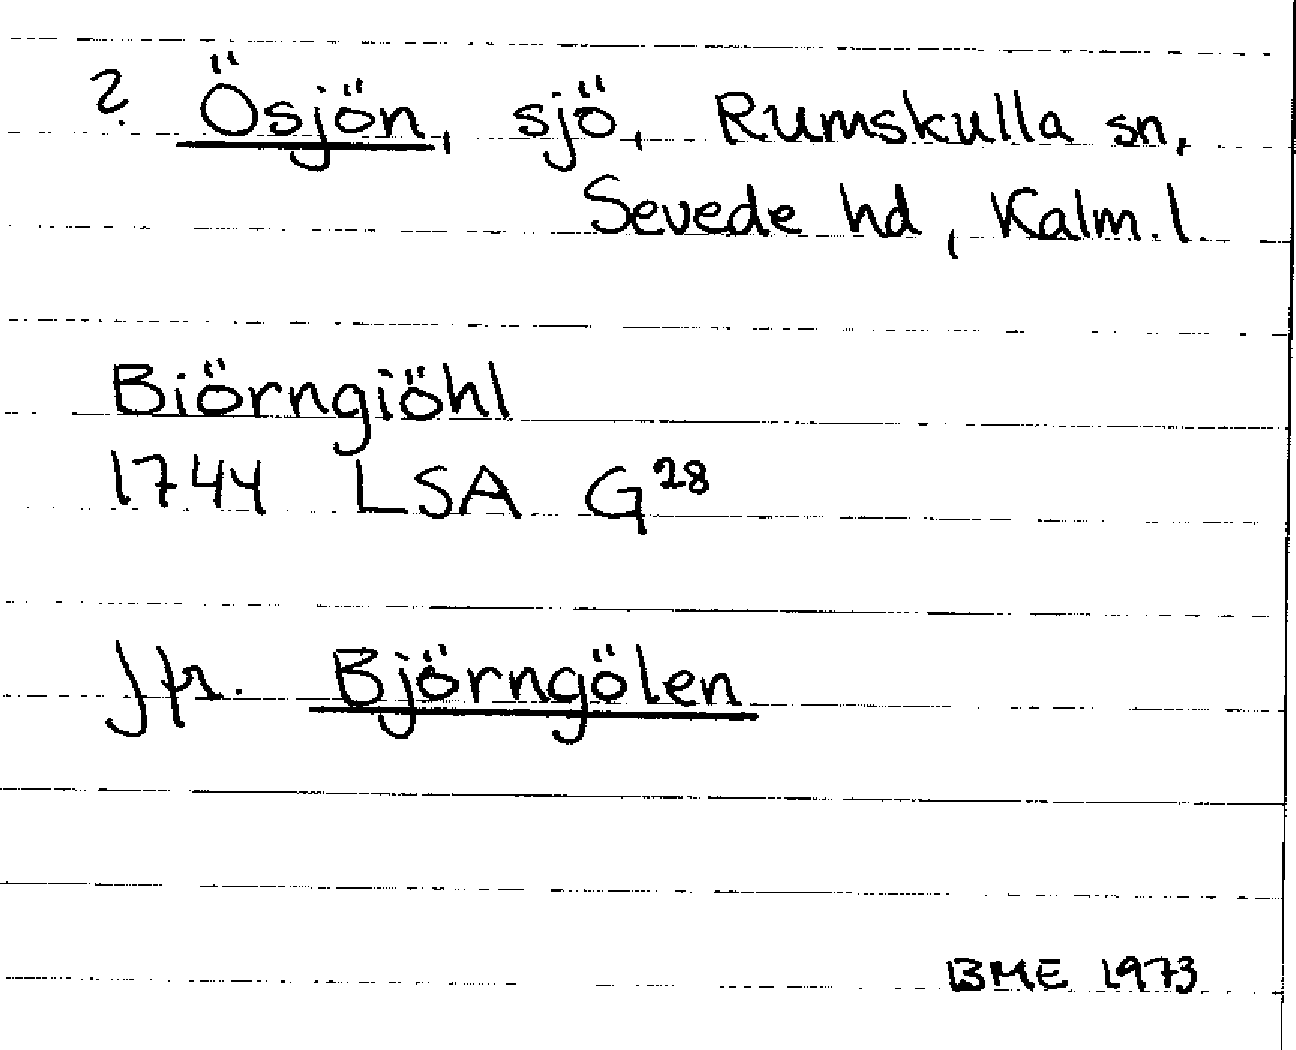 ? Ösjön, sjö, Rumskulla sn,
Sevede hd, Kalm. l.
Biörngiöhl
1744 LSA G28
Jfr. Björngölen
BME 1973